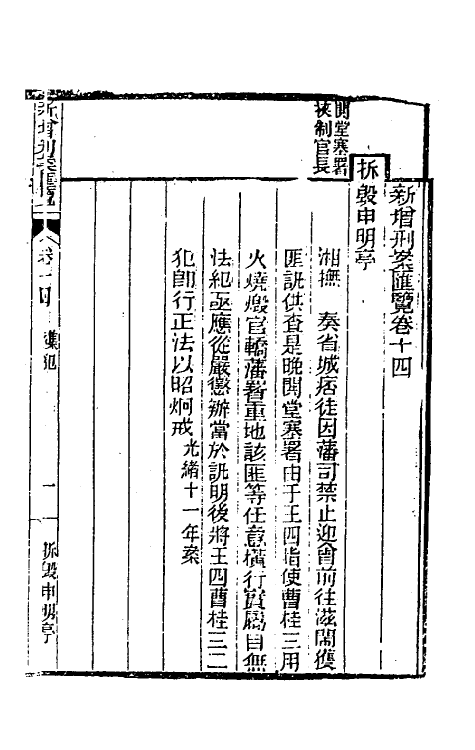 新增刑案匯覽卷十四
拆毀申明亭
鬧堂塞署
挾制官長
湘撫　奏省城痞徒因藩司禁止迎會前往滋鬧獲
匪訊供查是晚鬧堂塞署由于王四指使曹桂三用
火燒燬官轎藩署重地該匪等任意橫行實屬目無
法紀亟應從嚴懲辦當於訊明後將王四曹桂三二
犯卽行正法以昭炯戒光緒十一年案
新增刑案匯覽
卷十四
雜犯
一
拆毀申明亭